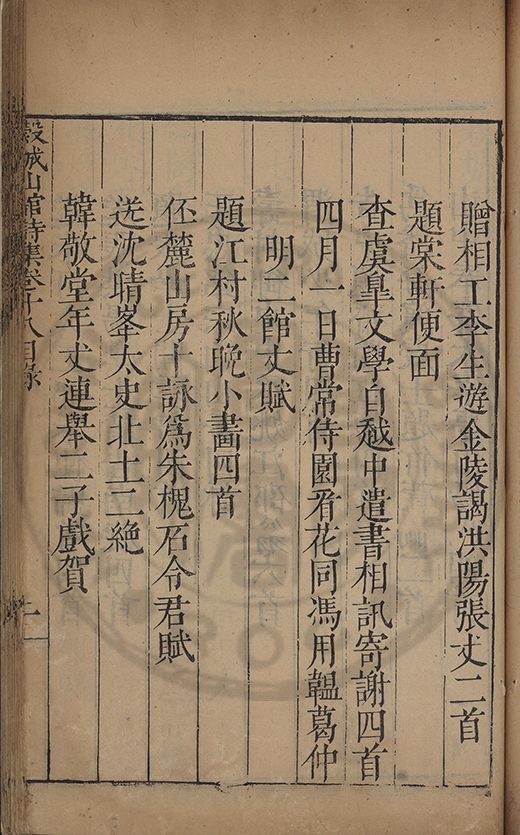 贈相工李生遊金陵謁洪陽張丈二首
題棠軒便面
查虞臯文學自越中遣書相訊寄謝四首
四月一日曹常侍園看花同馮用韞葛仲
明二館丈賦
題江村秋晚小畫四首
伾麓山房十詠爲朱槐石令君賦
送沈晴峯太史北上二絶
韓敬堂年丈連舉二子戲賀
穀城山館詩集卷十八目錄